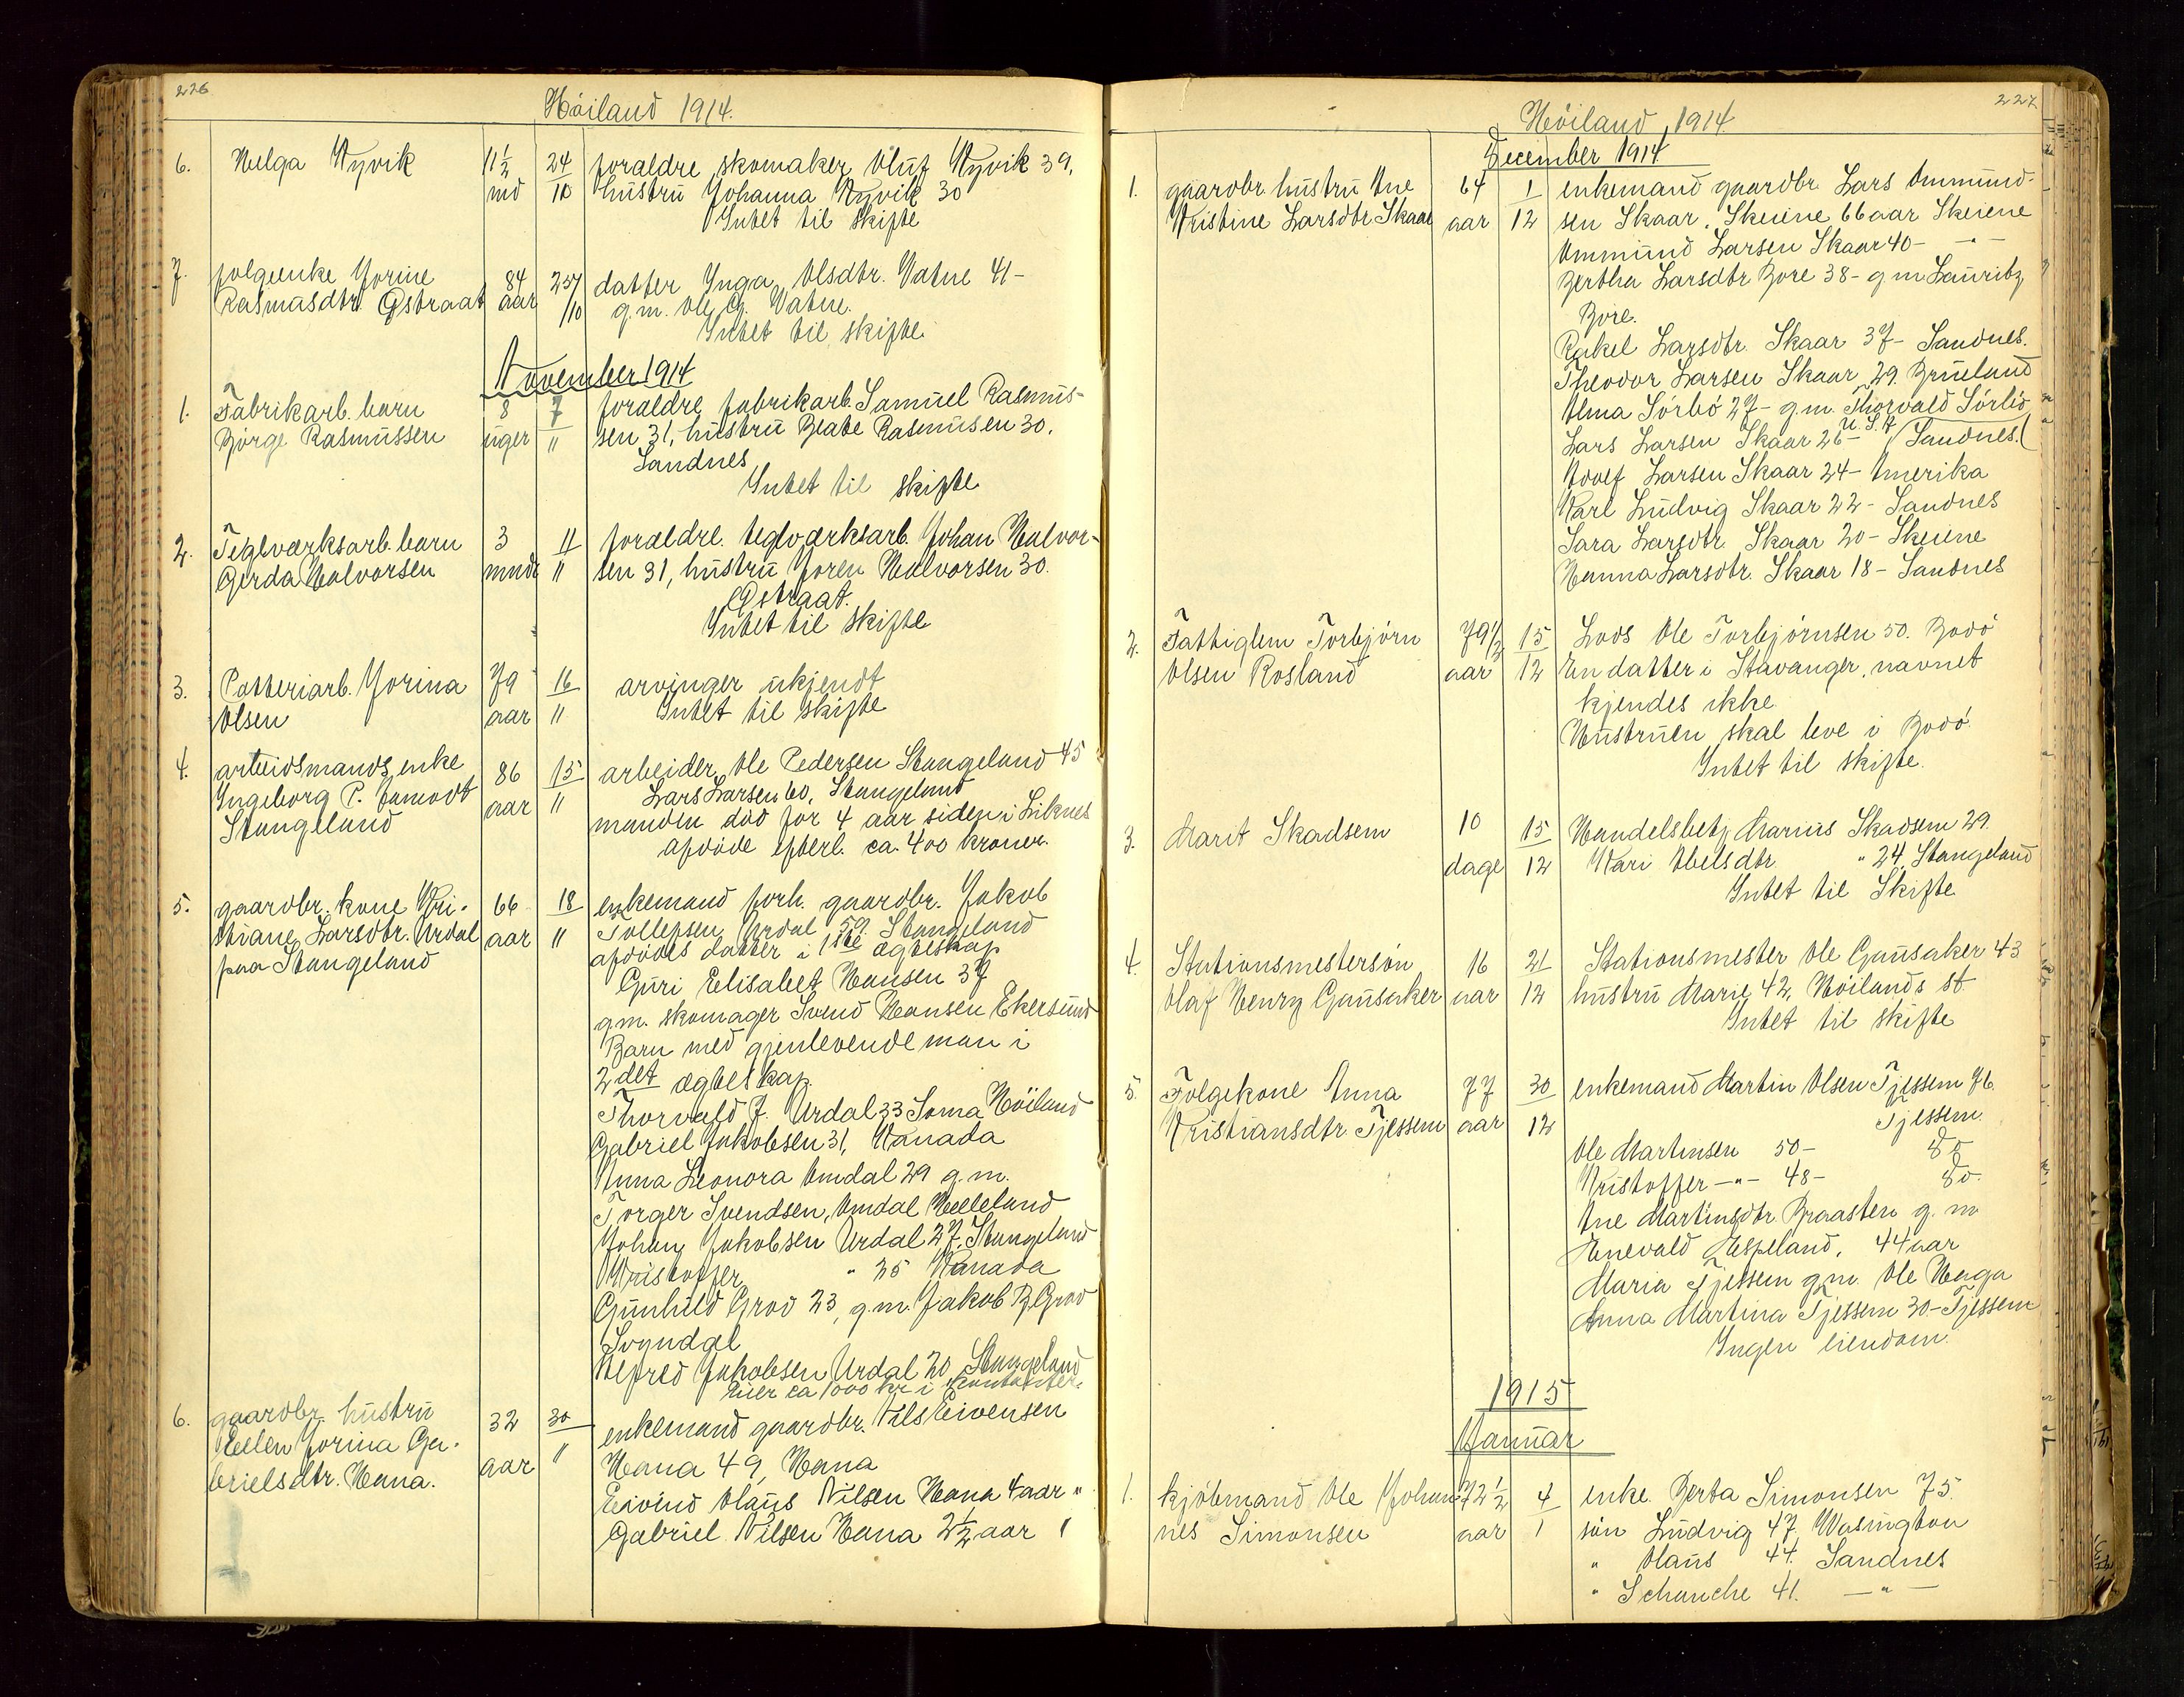 226
Höiland 1914.
6. Helga Kyvik 11½ 24 foraldre skomaker Oluf Kyvik 39,
md 10 hustru Johanna Kyvik 30
Intet til skifte
7. folgeenke Jorine 84 datter Inga Olsdtr. Vatne 41-
Rasmusdtr. Gstraat aar /10 g.m. Ole G. Vatne.
Intet til skifte.
November 1914
1. Fabrikarb. barn 8 7 foraldre fabrikarb. Samuel Rasmus-
Börge Rasmussen uger 11 sen 31, hustru Beate Rasmusen 30.
Sandnes
Intet til skifte
2. Teglværksarb. barn 3 11 foraldre. teglværksarb. Johan Halvor-
Gerda Halvorsen mndr 11 sen 31, hustru Joren Halvorsen 30.
Gstraat.
Intet til skifte
3. Potteriarb. Jorina 79 16 arvinger ukjendt
Olsen aar 11 Intet til skifte
4. arbeidsmands enke 86 15 arbeider Ole Pedersen Stangeland 45
Ingeborg P. aar 11 Lars Larsen 60, Stangeland
Stangeland manden död for 4 aar siden i Liknes
afdöde efterl. ca. 400 kroner.
5. gaardbr. kone Kri- 66 18 enkemand forh. gaardbr. Jakob
stiane Larsdtr. Urdal aar 11 Tollefsen Urdal 59. Stangeland
paa Stangeland afdödes datter i 1ste ægteskap
Guri Elisabet Hansen 37
g.m. skomager Svend Hansen Ekersund
Barn med gjenlevende man i
2det ægteskap.
Thorvald J. Urdal 33 Soma Höiland
Gabriel Jakobsen 31, Kanada
Anna Leonora Omdal 29 g.m.
Torger Svendsen, Omdal Helleland
Johan Jakobsen Urdal 27, Stangeland
Kristoffer " 25 Kanada
Gunhild Grov 23, g.m. Jakob B. Grov
Sogndal
Alfred Jakobsen Urdal 20 Stangeland
Eier ca 1000 kr i
6. gaardbr. hustru 32 30 enkemand gaardbr. Nils Eivensen
Ellen Jorina Ga- aar 11 Hana 49, Hana
brielsdtr. Hana. Eivind Olaus Nilsen Hana 4 aar "
Gabriel Nilsen Hana 2½ aar "
227
Höiland 1914
December 1914
1. gaardbr. hustru Ane 64 1 enkemand gaardbr. Lars Ommund-
Kristine Larsdtr. Skaar aar 12 sen Skaar, Skeiene 66 aar Skeiene
Ommund Larsen Skaar 40- -"-
Bertha Larsdtr Bore 38- g m Lauritz
Bore.
Rakel Larsdtr. Skaar 37- Sandnes.
Theodor Larsen Skaar 29. Brueland
Alma Sörbö 27- g.m. Thorvald Sörbö
Lars Larsen Skaar 26- U.S.A (Sandnes.)
Adolf Larsen Skaar 24- Amerika
Karl Ludvig Skaar 22- Sandnes
Sara Larsdtr. Skaar 20- Skeiene
Hanna Larsdtr. Skaar 18- Sandnes
2. Fattiglem Torbjörn 79½ 15 Lods Ole Torbjörnsen 50. Bodö
Olsen Rosland aar 12 En datter i Stavanger, navnet
kjendes ikke.
Hustruen skal leve i Bodö.
Intet til skifte.
3. Marit Skadsem 10 15 Handelsbetj Marius Skadsem 29.
dage 12 Kari Abelsdtr " 24, Stangeland
Intet til Skifte
4. Stationsmestersön 16 21 Stationsmester Ole Gausaker 43
Olaf Henry Gausaker aar 12 hustru Marie 42, Höilands st
Intet til skifte
5. Folgekone Anna 77 30 enkemand Martin Olsen Tjessem 76.
Kristiansdtr Tjessem aar 12 Tjessem.
Ole Martinsen 50- do
Kristoffer -"- 48- do.
Ane Martinsdtr. Braasten g. m
Enevald Espeland, 44 aar
Maria Tjessem g.m. Ole Haga
Anna Martina Tjessem 30- Tjessem
Ingen eiendom.
1915
Januar
1. kjöbmand Ole Johan- 72½ 4 enke. Berta Simonsen 75.
nes Simonsen aar 1 sön Ludvig 47, Wasington
" Olaus 44. Sandnes
" Schanche 41. -"-